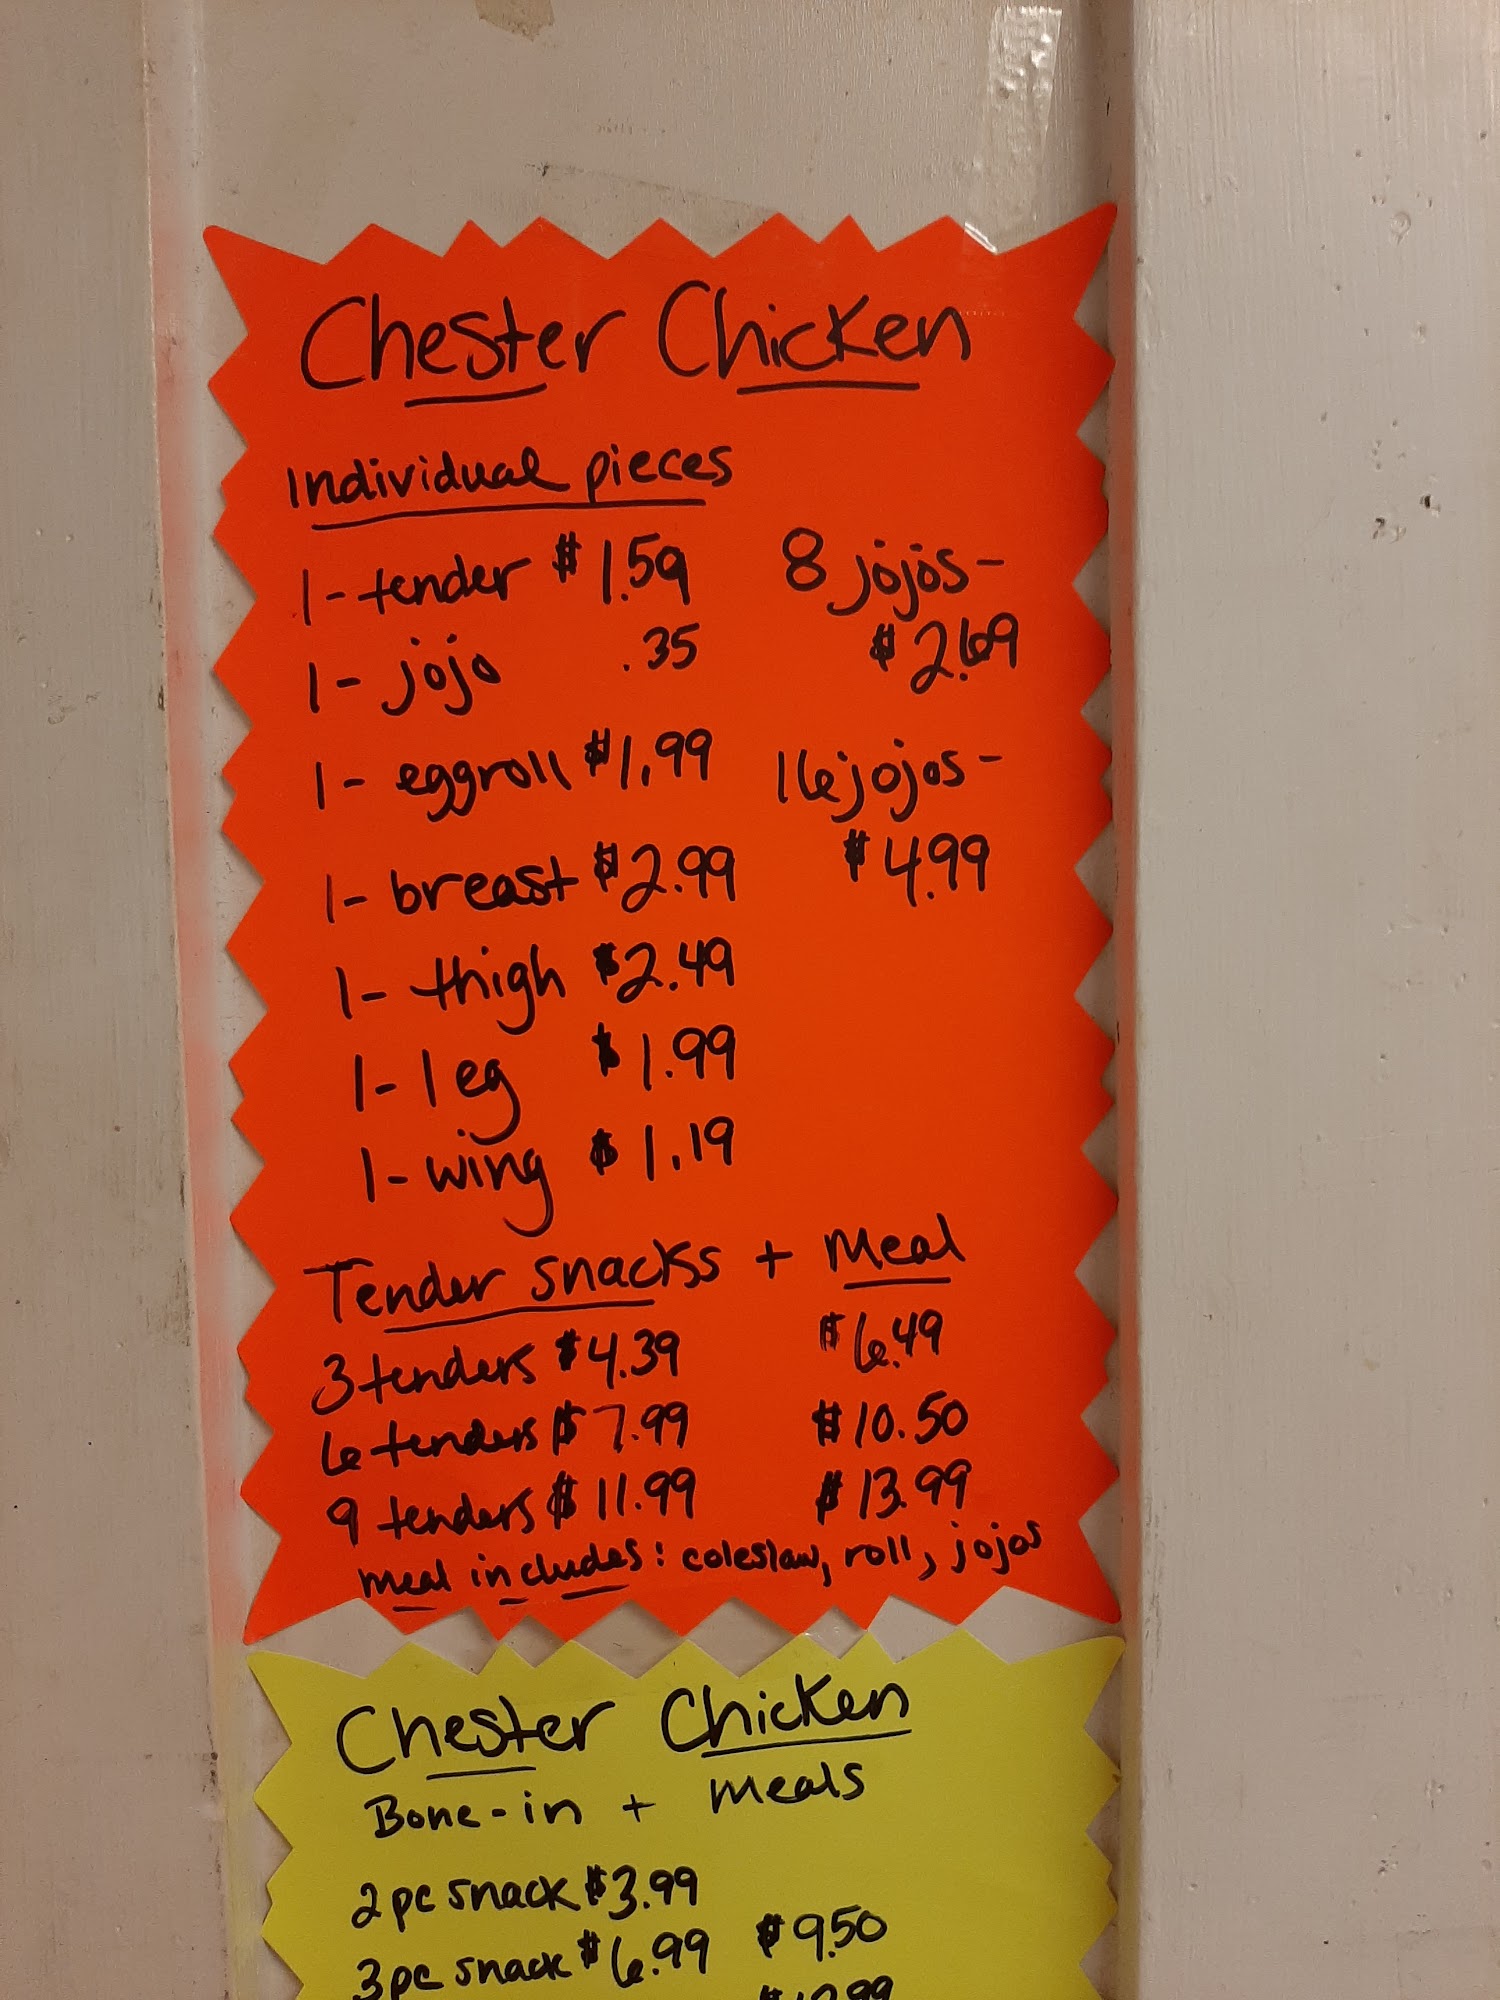 Chester Chicken
Individual pieces
1-tender $1.59
1-jojo .35
1-eggroll $1.99
1-breast $2.99
1-thigh $2.49
1-leg $1.99
1-wing $1.19
8 jojos-
$2.69
16 jojos-
$4.99
Tender snacks + Meal
3 tenders $4.39 $6.49
6 tenders $7.99 $10.50
9 tenders $11.99 $13.99
meal includes: coleslaw, roll, jojos
Chester Chicken
Bone-in + meals
2pc snack $3.99
3pc snack $6.99 $9.50